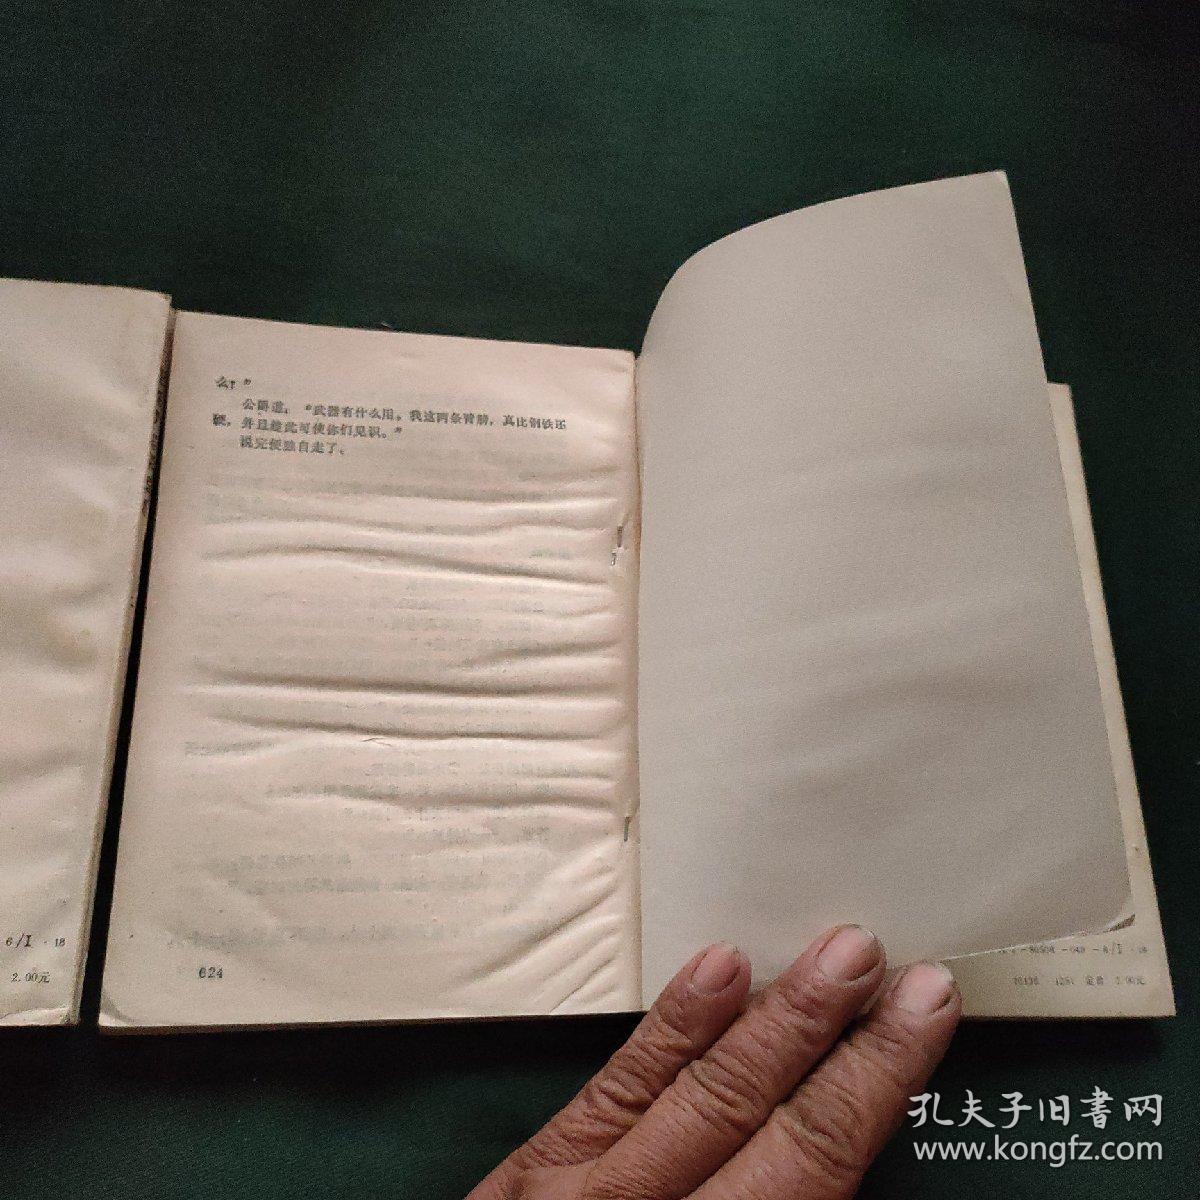 么！”
公爵道：“武器有什么用。我这两条臂膀，真比钢铁还
硬，并且趁此可使你们见识。”
说完便独自走了。
624
6/I·18
2.00元
-80508-049-6/I·18
10136·1281 定价 2.00元
孔夫子旧書网
www.kongfz.com